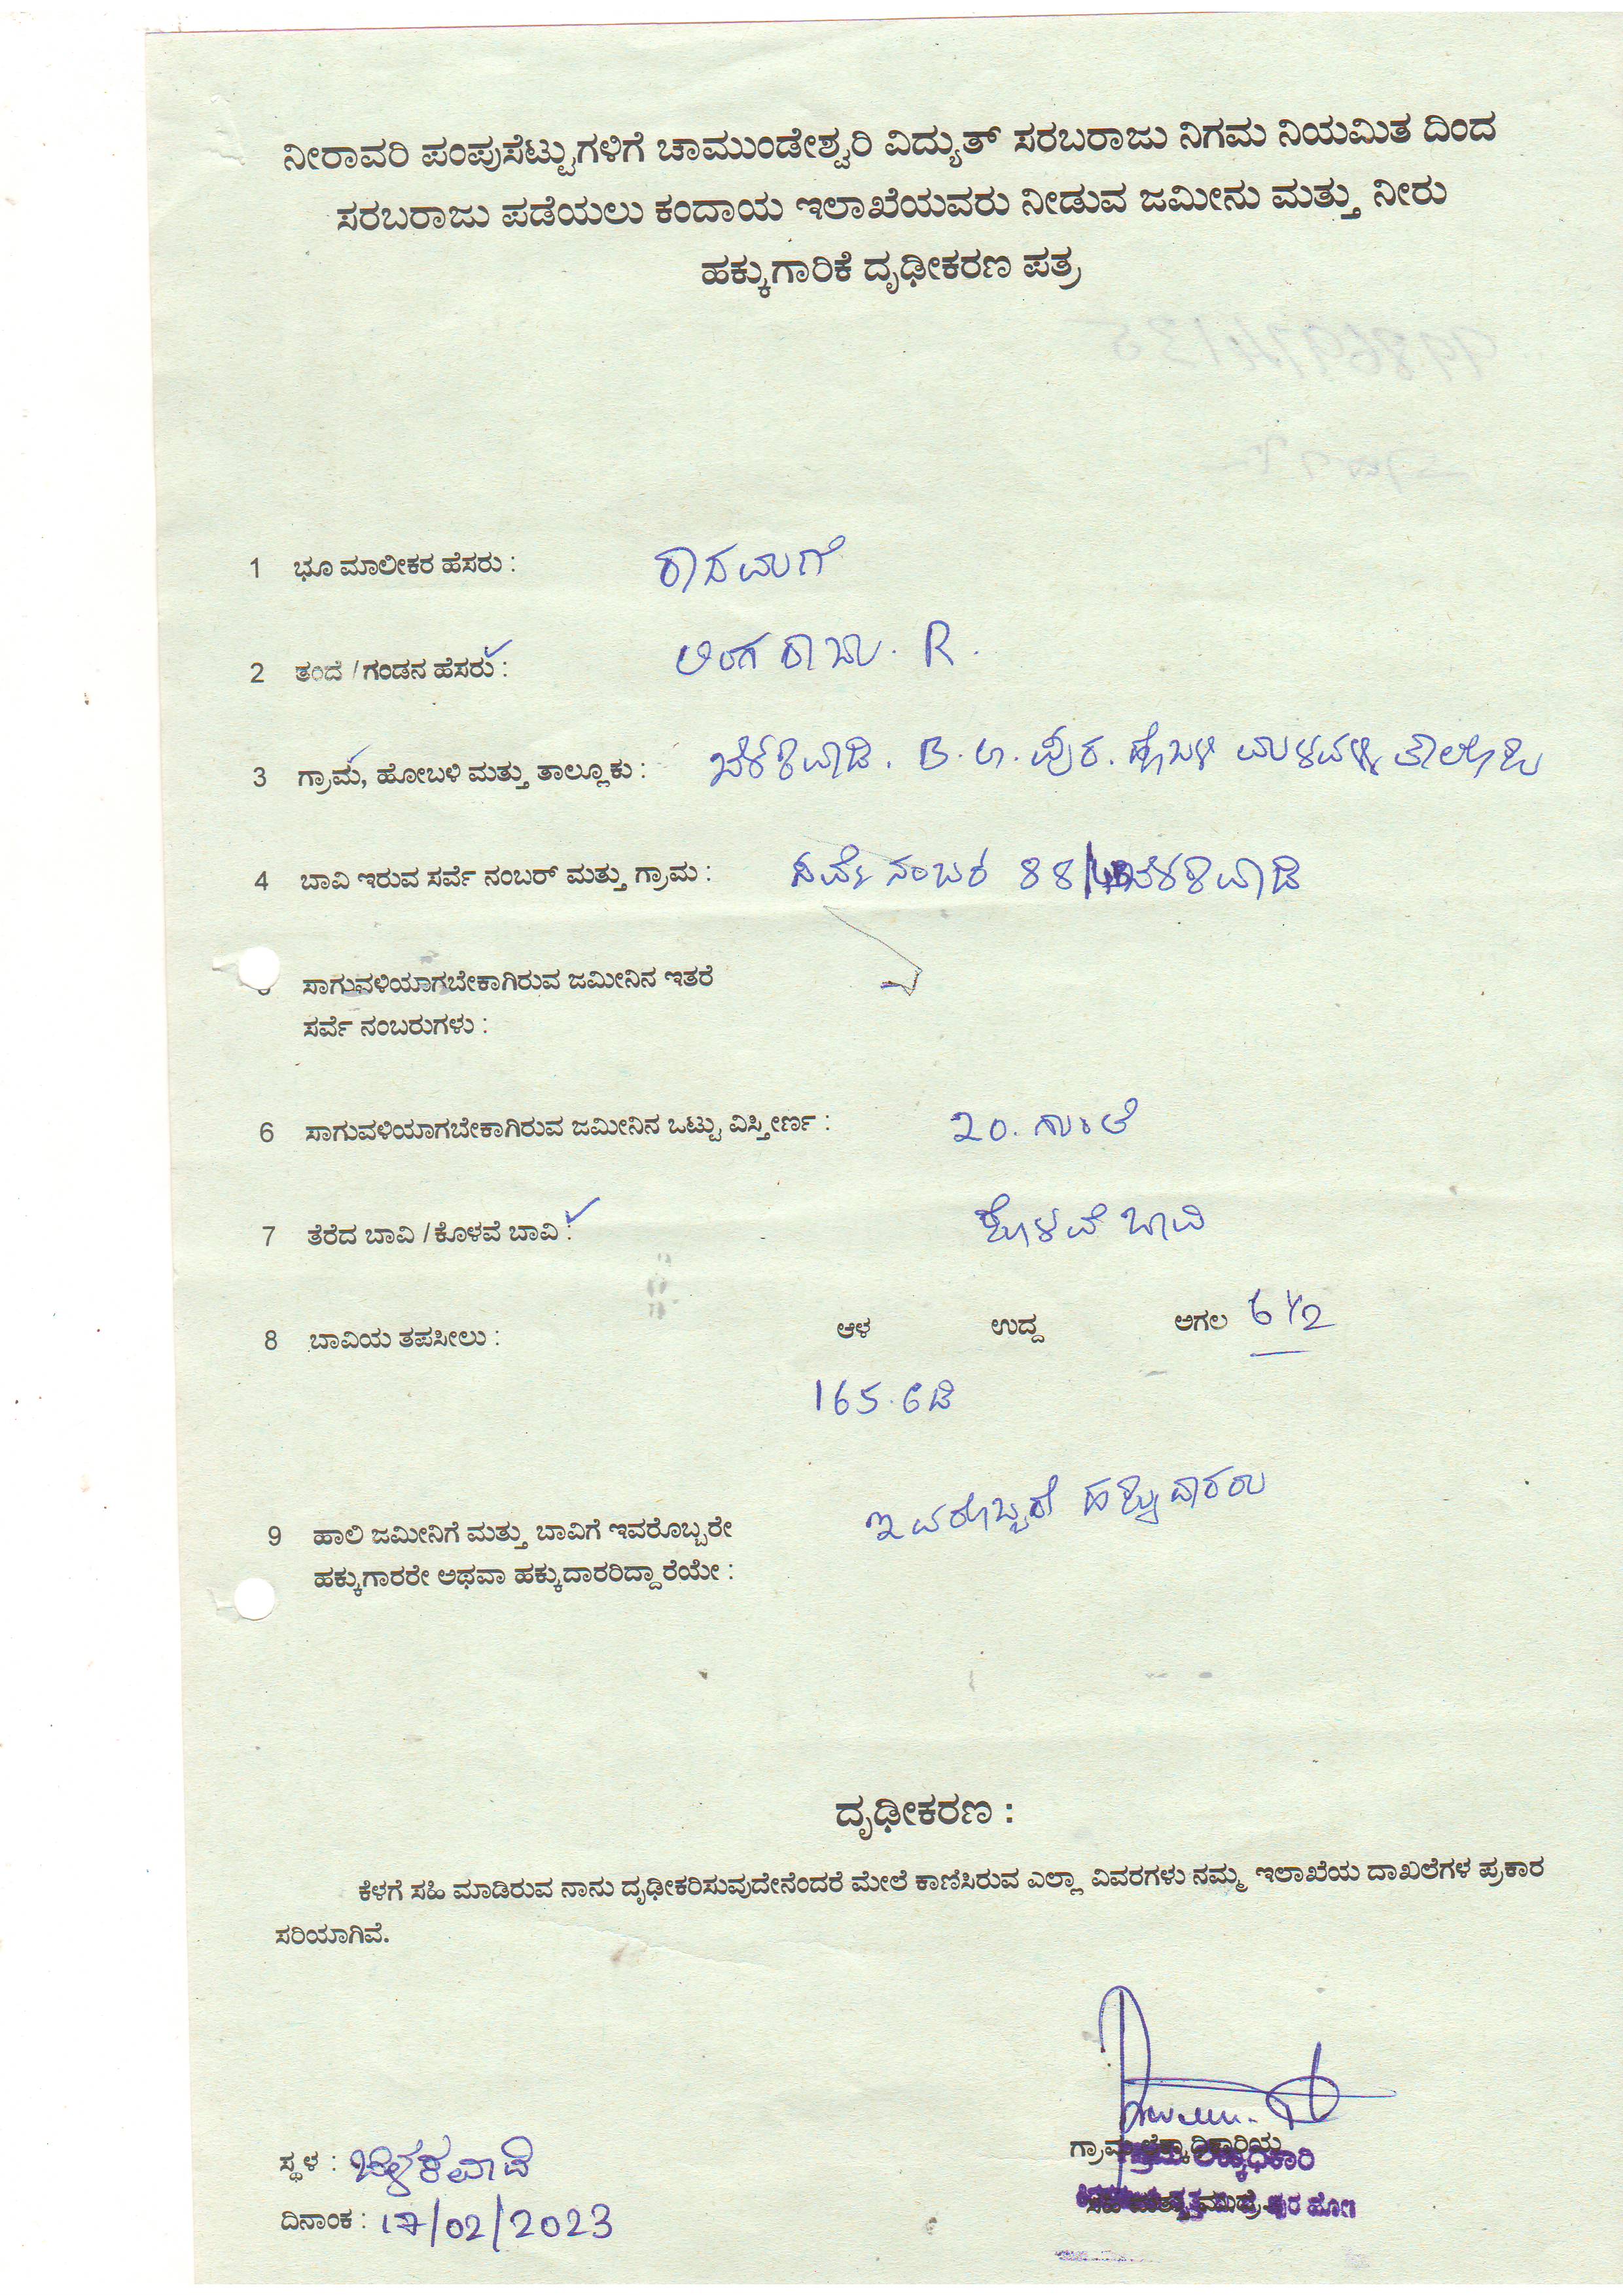 ನೀರಾವರಿ ಪಂಪುಸೆಟ್ಟುಗಳಿಗೆ ಚಾಮುಂಡೇಶ್ವರಿ ವಿದ್ಯುತ್ ಸರಬರಾಜು ನಿಗಮ ನಿಯಮಿತ ದಿಂದ
ಸರಬರಾಜು ಪಡೆಯಲು ಕಂದಾಯ ಇಲಾಖೆಯವರು ನೀಡುವ ಜಮೀನು ಮತ್ತು ನೀರು
ಹಕ್ಕುಗಾರಿಕೆ ದೃಢೀಕರಣ ಪತ್ರ
1 ಭೂ ಮಾಲೀಕರ ಹೆಸರು :
2 ತಂದೆ / ಗಂಡನ ಹೆಸರು : ಲಿಂಗರಾಜು. R.
3 ಗ್ರಾಮ, ಹೋಬಳಿ ಮತ್ತು ತಾಲ್ಲೂಕು : ಬೆಳಕವಾಡಿ. B. G. ಪುರ. ಹೋಬಳಿ ಮಳವಳ್ಳಿ ತಾಲ್ಲೂಕು
4 ಬಾವಿ ಇರುವ ಸರ್ವೆ ನಂಬರ್ ಮತ್ತು ಗ್ರಾಮ : ಸರ್ವೆ ನಂಬರ 88/4B ಬೆಳಕವಾಡಿ
ಸಾಗುವಳಿಯಾಗಬೇಕಾಗಿರುವ ಜಮೀನಿನ ಇತರೆ
ಸರ್ವೆ ನಂಬರುಗಳು :
6 ಸಾಗುವಳಿಯಾಗಬೇಕಾಗಿರುವ ಜಮೀನಿನ ಒಟ್ಟು ವಿಸ್ತೀರ್ಣ : 20. ಗುಂಟೆ
7 ತೆರೆದ ಬಾವಿ / ಕೊಳವೆ ಬಾವಿ : ಕೊಳವೆ ಬಾವಿ
8 ಬಾವಿಯ ತಪಸೀಲು : ಆಳ ಉದ್ದ ಅಗಲ 6 1/2
165. ಅಡಿ
9 ಹಾಲಿ ಜಮೀನಿಗೆ ಮತ್ತು ಬಾವಿಗೆ ಇವರೊಬ್ಬರೇ ಇವರೊಬ್ಬರೆ ಹಕ್ಕುದಾರರು
ಹಕ್ಕುಗಾರರೇ ಅಥವಾ ಹಕ್ಕುದಾರರಿದ್ದಾರೆಯೇ :
ದೃಢೀಕರಣ :
ಕೆಳಗೆ ಸಹಿ ಮಾಡಿರುವ ನಾನು ದೃಢೀಕರಿಸುವುದೇನೆಂದರೆ ಮೇಲೆ ಕಾಣಿಸಿರುವ ಎಲ್ಲಾ ವಿವರಗಳು ನಮ್ಮ ಇಲಾಖೆಯ ದಾಖಲೆಗಳ ಪ್ರಕಾರ
ಸರಿಯಾಗಿವೆ.
ಸ್ಥಳ : ಬೆಳಕವಾಡಿ
ದಿನಾಂಕ : 17/02/2023